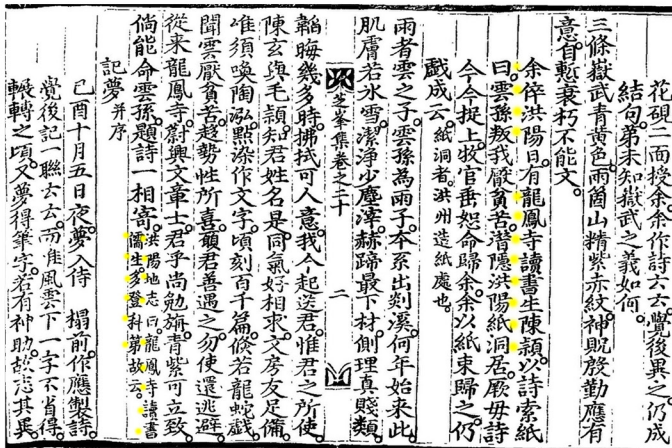 花硯二面授余。余作詩云云。覺後異之。仍成
結句。第未知嶽武之義如何。
三條嶽武青黃色。兩箇山精紫赤紋。神貺殷勤應有
意。自慙衰朽不能文。
余倅洪陽日。有龍鳳寺讀書生陳頴。以詩索紙
曰。雲孫叛我厭貧苦。潛隱洪陽紙洞居。厥毋詩
今令捉上。牧官垂恕命歸余。余以紙束歸之。仍
戱成云。紙洞者。洪州造紙處也。
雨者雲之子。雲孫爲雨子。本系出剡溪。何年始來此。
肌膚若氷雪。潔淨少塵滓。赫蹄最下材。側理真賤類。
芝峯集卷之二十
二
韜晦幾多時。拂拭可人意。我今起送君。惟君之所使。
陳玄與毛頴。知君姓名是。同氣好相求。文房友足備。
唯須喚陶泓。點染作文字。頃刻百千篇。倐若龍蛇戱。
聞雲厭貧苦。趍勢性所喜。願君善遇之。勿使還逃避。
從來龍鳳寺。蔚興文章士。君乎尙勉旃。青紫可立致。
倘能命雲孫。題詩一相寄。洪陽地志曰。龍鳳寺讀書
儒生。多登科第故云。
記夢 幷序
己酉十月五日夜。夢入侍 榻前。作應製詩。
覺後記一聯云云。而唯風雲下一字不省得。
輾轉之頃。又夢得筆字。若有神助。故志其異